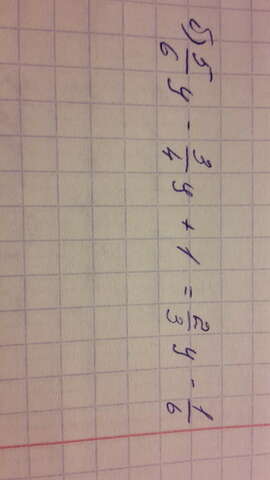 б) 5/6 y - 3/4 y + 1 = 2/3 y - 1/6